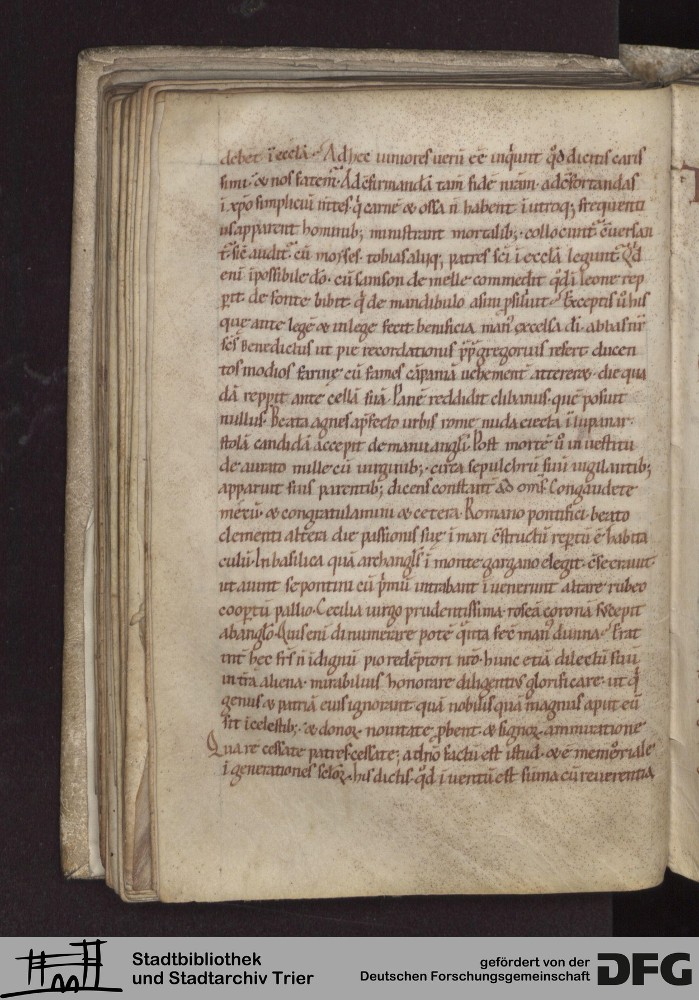 debet ī eccłā. Ad hec iuniores uerū ēē inquiunt qd̄ dicitis caris
simi. & nos fatem̄. Ad cfirmandā tam̄ fidē nr̄am. ad cfortandas
ī xp̄o simpliciū m̄tes. q̄ carnē & ossa n̄ habent ī utroq; frequent̄
us apparent hominib; ministrant mortalib; collocunt̄. c̄uersan
t̄. sic̄ audit̄ cū moyses. tobias aliiq; patres sc̄i ī eccłā legunt̄. Qd
enī īpossibile dō. cū samson de melle commedit qd̄ ī leone rep
ꝑit. de fonte bibit q̄ de mandibulo asini ꝓsiliuit. Exceptis ū his
que ante legē & in lege fecit benificia man᷒ excelsa dī. abbas nr̄
sc̄s Benedictus ut pie recordationis p̄p̄ gregorius refert ducen
tos modios farinę cū fames cāpaniā uehement̄ attereret. die qua
dā repꝑit ante cellā suā. Panē reddidit clibanus. quē posuit
nullus. Beata agnes a p̄fecto urbis rome nuda eiecta ī lupanar.
stolā candidā accepit de manu angłi. Post mortē ū in uestitu
de aurato mille cū uirginib; circa sepulchrū suū uigilantib;
apparuit suis parentib; dicens constant̄ ad om̄s. Congaudete
mecū. & congratulamini & cetera. Romano pontifici beato
clementi altera die passionis suę ī mari c̄structū reptū ē habita
culū. In basilica quā archangłs ī monte gargano elegit. c̄secrauit
ut aiunt sepontini cū p̄mū intrabant ī uenerunt altare rubeo
coopertū pallio. Cecilia uirgo prudentissima. roseā coronā suscepit
ab angło. Quis enī dinumerare potē quanta fecē man᷒ diuina. Erat
int̄ hec fr̄s n̄ īdignū pio redēptori nr̄o. hunc etiā dilectū suū
in tr̄a aliena. mirabilius honorare diligentius glorificare. ut q̄
genus & patriā eius ignorant. quā nobilis quā magnus aput eū
sit ī celestib; & donoꝝ nouitate ꝓbent. & signoꝝ ammiratione
Quare cessate patres. cessate; a dn̄o factū est istud. & ē memoriale
ī generationes sc̄łoꝝ. his dictis. qd̄ ī uentū est suma cū reuerentia
Stadtbibliothek
und Stadtarchiv Trier
gefördert von der
Deutschen Forschungsgemeinschaft
DFG